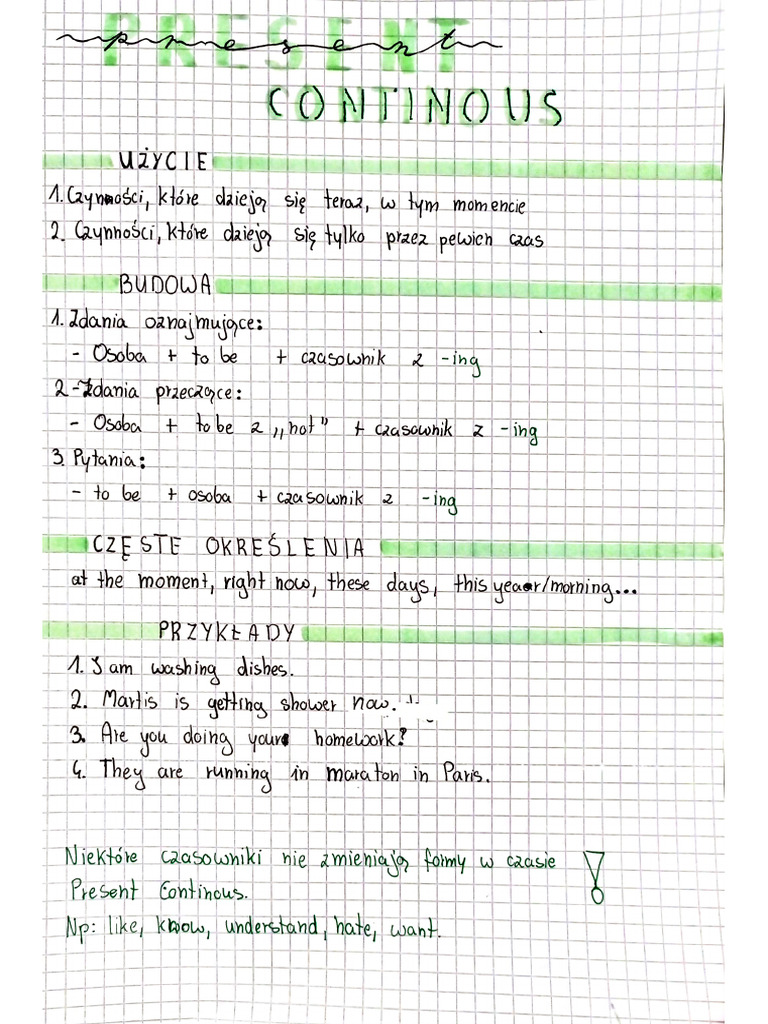 PRESENT
present
CONTINOUS
UŻYCIE
1. Czynności, które dzieją się teraz, w tym momencie
2. Czynności, które dzieją się tylko przez pewien czas
BUDOWA
1. Zdania oznajmujące:
- Osoba + to be + czasownik z -ing
2-Zdania przeczące:
- Osoba + to be z „not” + czasownik z -ing
3. Pytania:
- to be + osoba + czasownik z -ing
CZĘSTE OKREŚLENIA
at the moment, right now, these days, this year/morning...
PRZYKŁADY
1. I am washing dishes.
2. Martis is getting shower now.
3. Are you doing your homework?
4. They are running in maraton in Paris.
Niektóre czasowniki nie zmieniają formy w czasie
Present Continous.
Np: like, know, understand, hate, want.